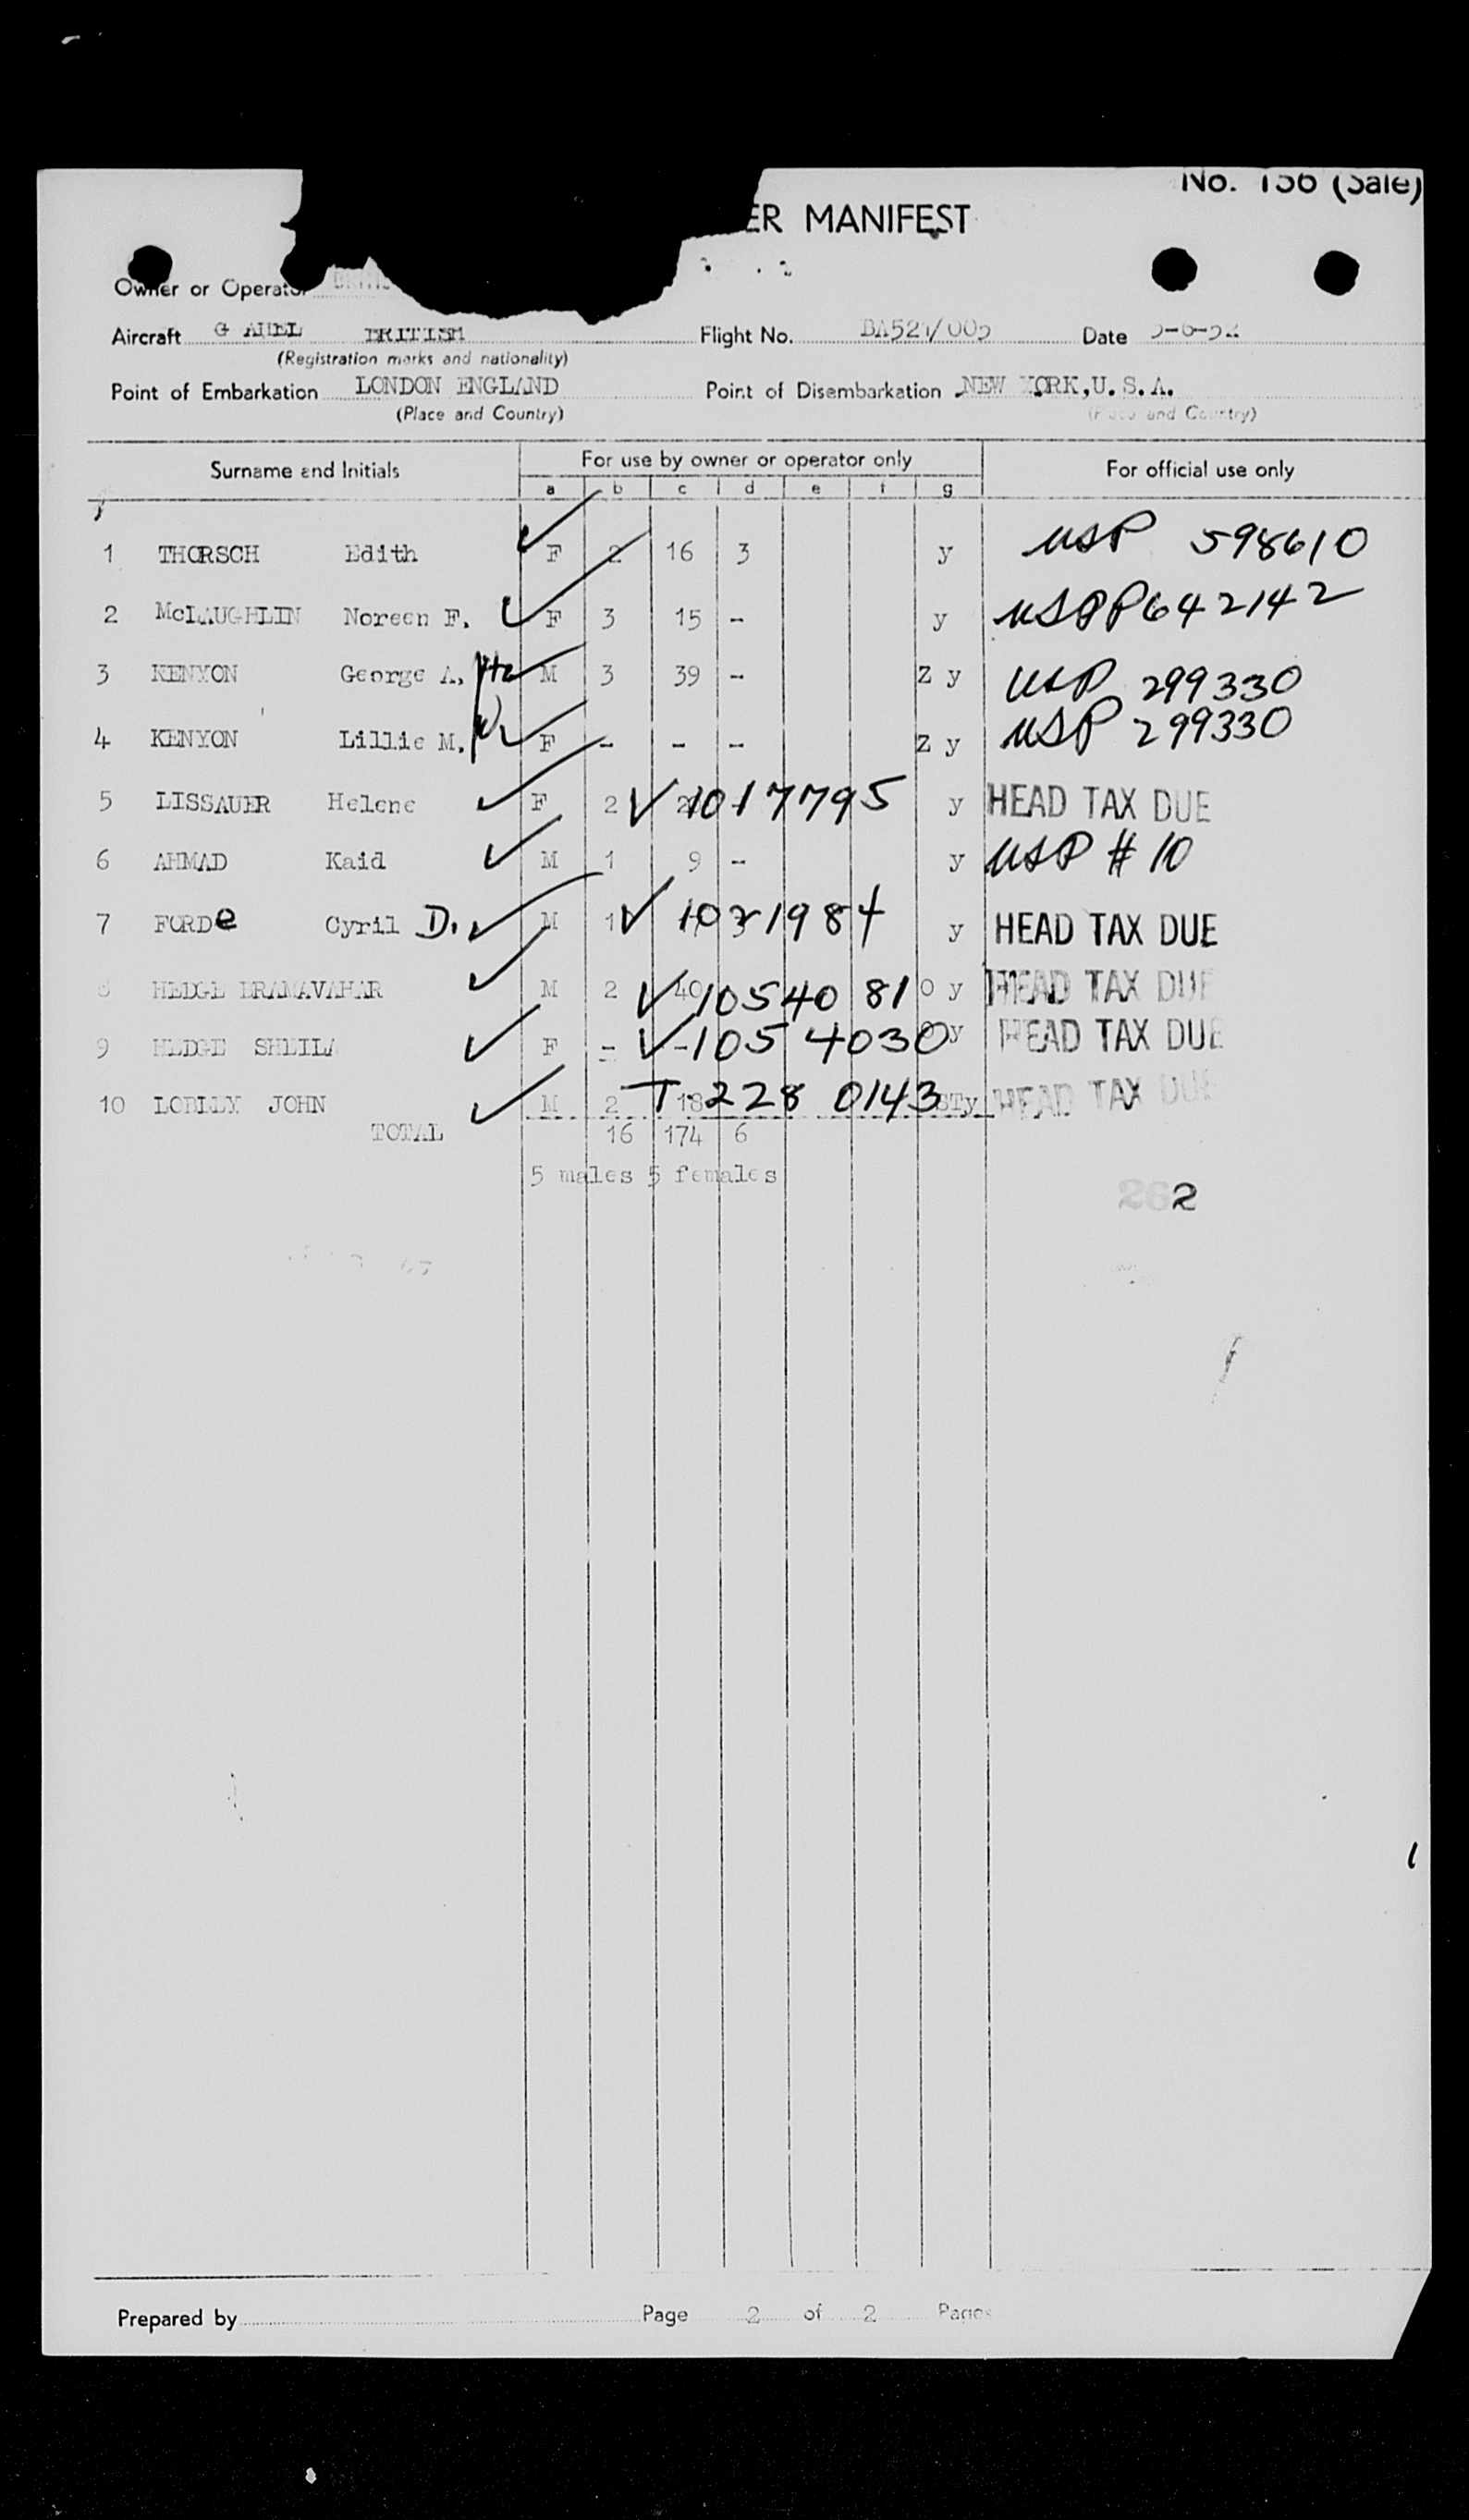 No. 156 (Sale)
ER MANIFEST
Owner or Operator
Aircraft G BRITISH Flight No. Date
(Registration marks and nationality)
Point of Embarkation LONDON ENGLAND Point of Disembarkation NEW YORK, U.S.A.
(Place and Country) (Place and Country)
Surname and Initials For use by owner or operator only For official use only
a b c d e f g
1 THORSCH Edith F 2 16 3 y USP 598610
2 McLAUGHLIN Noreen F. F 3 15 - y USPP642142
3 KENYON George A. M 3 39 - Z y USP 299330
4 KENYON Lillie M. F - - - Z y USP 299330
5 LISSAUER Helene F 2 ✓ 1017795 y HEAD TAX DUE
6 AHMAD Kaid M 1 9 - y USP # 10
7 FORDe Cyril D. M 1 ✓ 1021984 y HEAD TAX DUE
8 HEDGE M 2 40 ✓ 1054081 O y HEAD TAX DUE
9 HEDGE SHEILA F - - ✓ 1054030 y HEAD TAX DUE
10 JOHN M 2 18 T-228 0143 STy HEAD TAX DUE
TOTAL 16 174 6
5 males 5 females
262
Prepared by Page 2 of 2 Pages